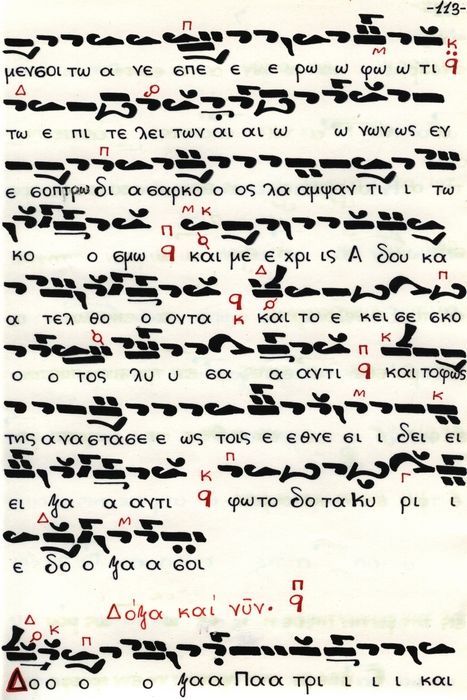 -113-
μενϭοι τω α νε ϭπε ε ε ρω ω φω ω τι
τω ε πι τε λει των αι αι ω ω ω νων ως εν
ε ϭοπτρω δι α ϭαρκο ο ος λα αμψαν τι ι τω
κο ο ϭμω και με ε χρις Α δου κα
α τελ θο ο οντα και το ε κει ϭε ϭκο
ο ο τος λυ υ ϭα α αντι και το φως
της α να ϭτα ϭε ε ως τοις ε ε θνε ϭι ι δει ει
ει ξα α αντι φω το δο τα Κυ ρι ι
ε δο ο ξα α ϭοι
Δόξα καὶ νῦν.
Δο ο ο ο ξα α Πα α τρι ι ι και